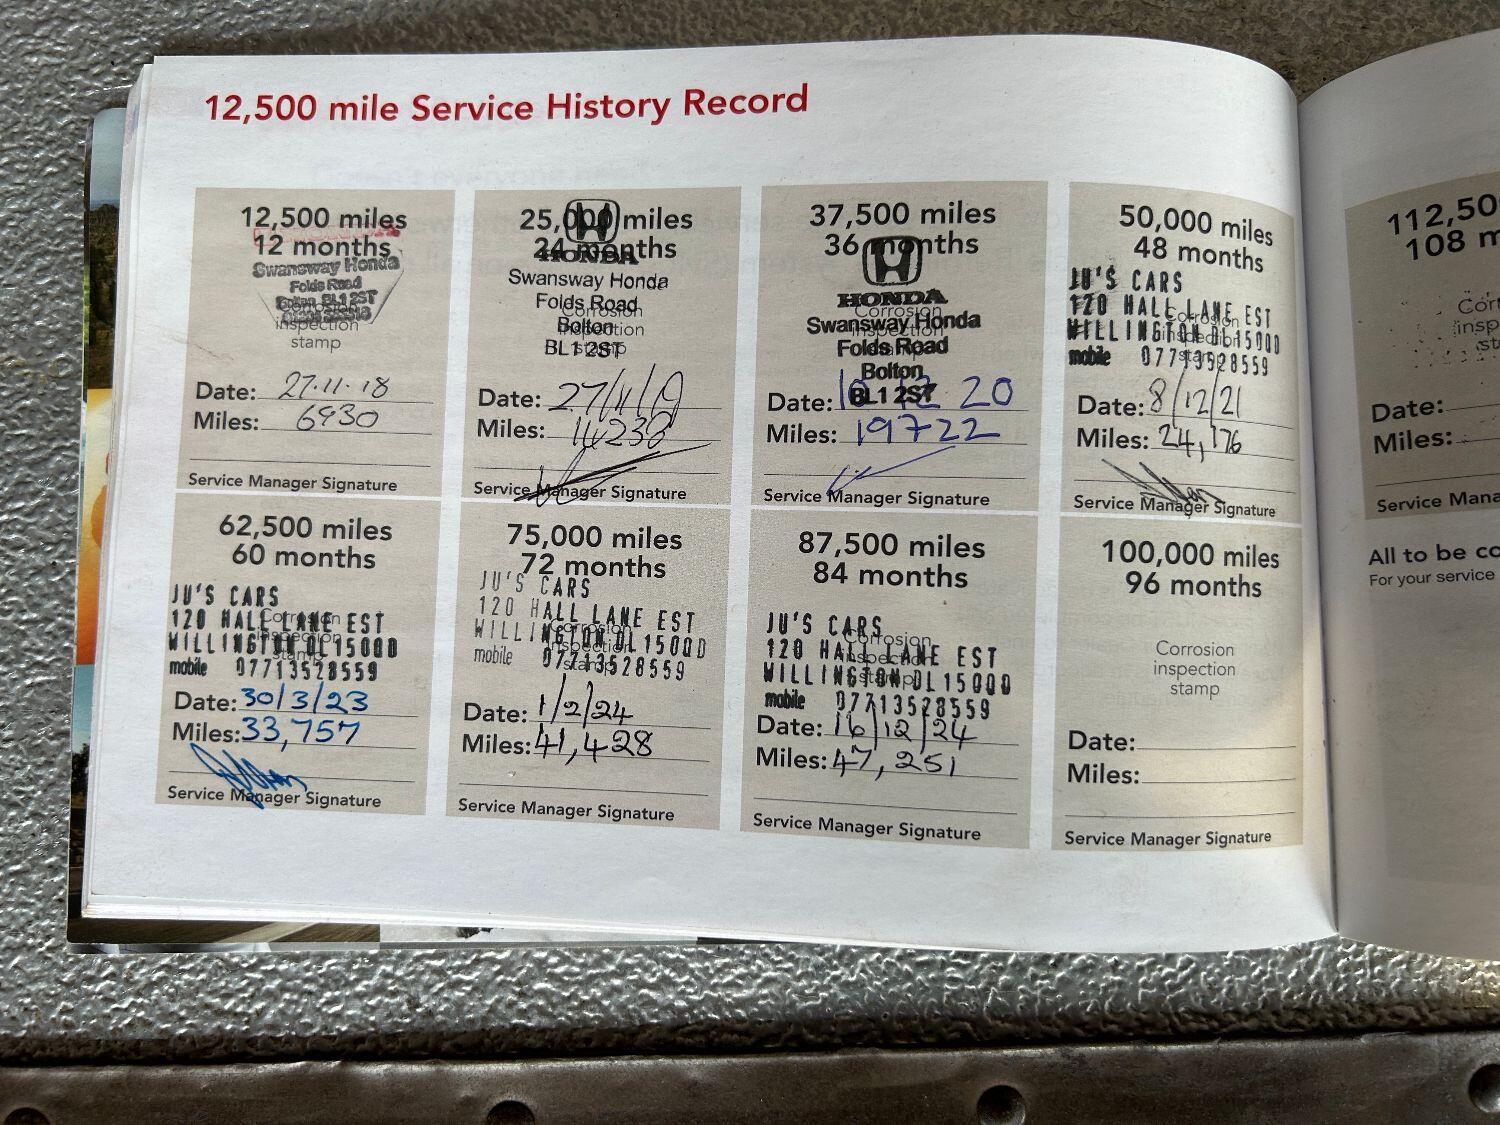 12,500 mile Service History Record
12,500 miles
12 months
Swansway Honda
Folds Road
Bolton BL1 2ST
Corrosion
inspection
stamp
Date: 27.11.18
Miles: 6930
Service Manager Signature
25,000 miles
24 months
HONDA
Swansway Honda
Folds Road
Bolton
BL1 2ST
Corrosion
inspection
stamp
Date: 27/11/19
Miles: 14238
Service Manager Signature
37,500 miles
36 months
HONDA
Swansway Honda
Folds Road
Bolton
BL1 2ST
Corrosion
inspection
Date: 10 12 20
Miles: 19722
Service Manager Signature
50,000 miles
48 months
JU'S CARS
120 HALL LANE EST
WILLINGTON DL150QD
mobile 07713528559
Corrosion
inspection
stamp
Date: 8/12/21
Miles: 24,176
Service Manager Signature
62,500 miles
60 months
JU'S CARS
120 HALL LANE EST
WILLINGTON DL150QD
mobile 07713528559
Corrosion
inspection
stamp
Date: 30/3/23
Miles: 33,757
Service Manager Signature
75,000 miles
72 months
JU'S CARS
120 HALL LANE EST
WILLINGTON DL150QD
mobile 07713528559
Corrosion
inspection
stamp
Date: 1/2/24
Miles: 41,428
Service Manager Signature
87,500 miles
84 months
JU'S CARS
120 HALL LANE EST
WILLINGTON DL150QD
mobile 07713528559
Corrosion
inspection
stamp
Date: 16/12/24
Miles: 47,251
Service Manager Signature
100,000 miles
96 months
Corrosion
inspection
stamp
Date:
Miles:
Service Manager Signature
112,50
108 m
Corr
insp
st
Date:
Miles:
Service Mana
All to be co
For your service